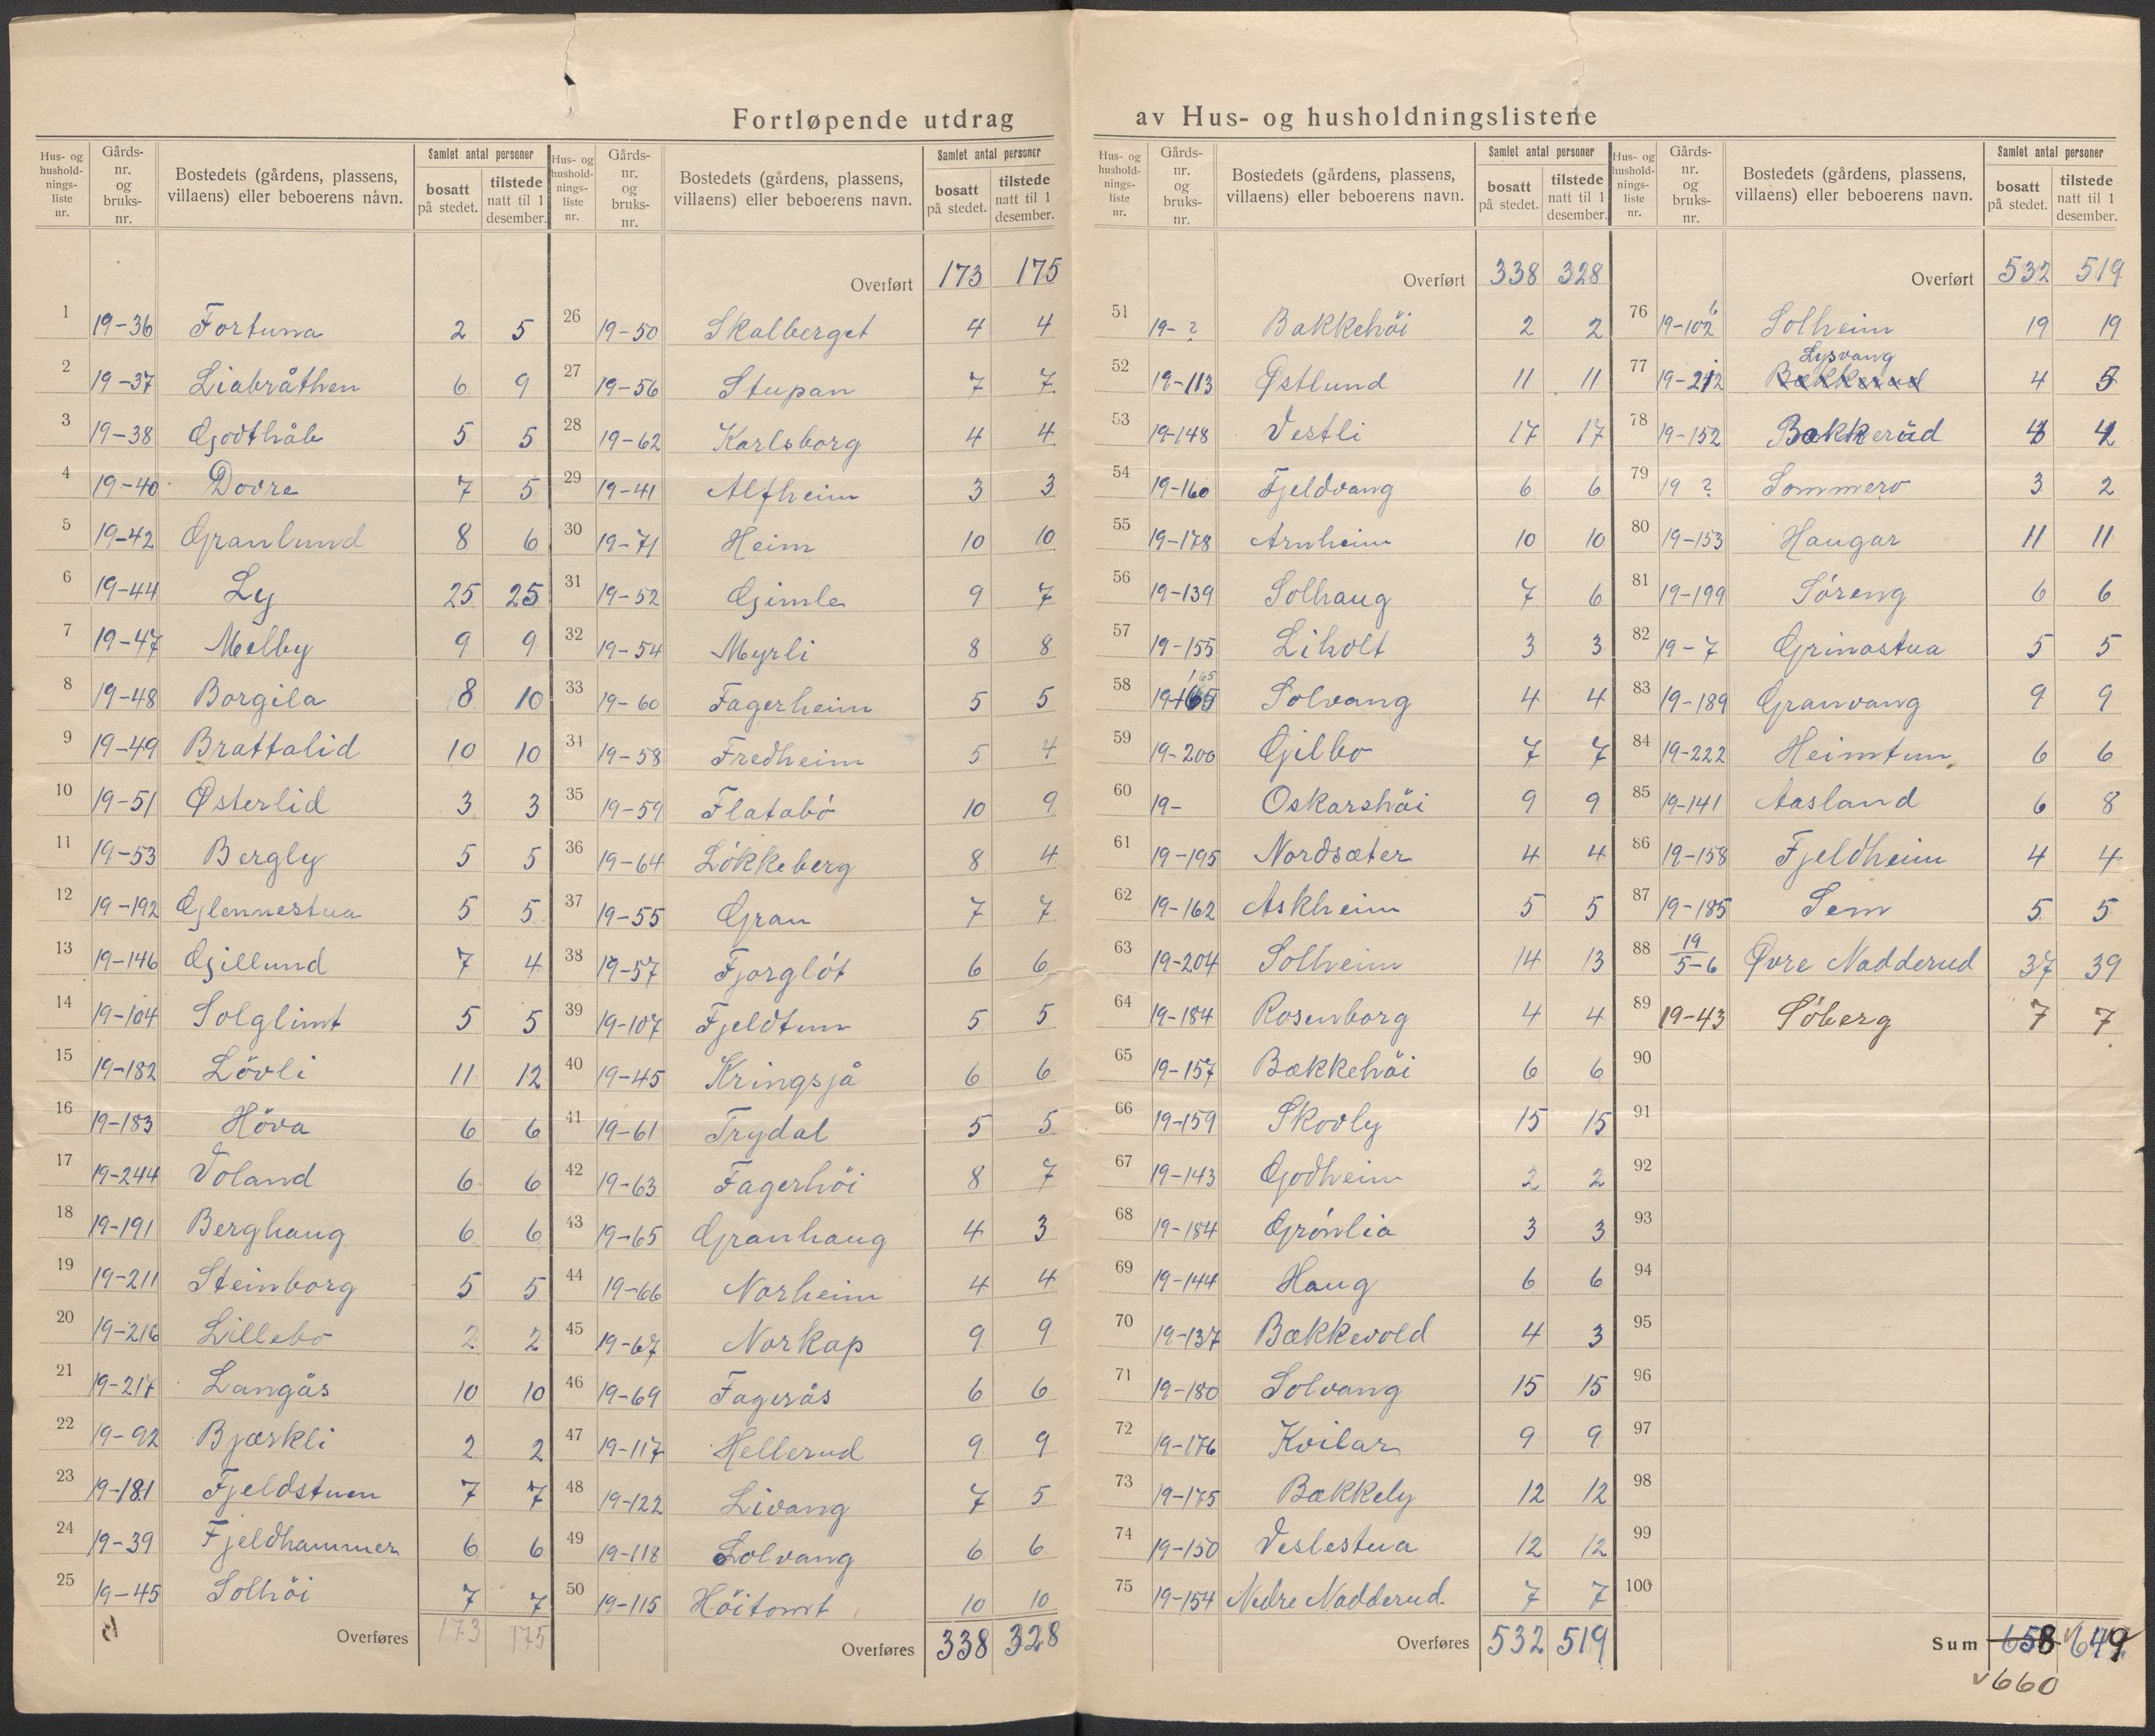 Fortløpende utdrag av Hus- og husholdningslistene
Hus- og hushold-nings-liste nr. | Gårds-nr. og bruks-nr. | Bostedets (gårdens, plassens, villaens) eller beboerens navn. | Samlet antal personer | bosatt på stedet. | tilstede natt til 1 desember.
1 19-36 Fortuna 2 5
2 19-37 Liabråthen 6 9
3 19-38 Godthåb 5 5
4 19-40 Dovre 7 5
5 19-42 Granlund 8 6
6 19-44 Ly 25 25
7 19-47 Melby 9 9
8 19-48 Borgila 8 10
9 19-49 Brattalid 10 10
10 19-51 Østerlid 3 3
11 19-53 Bergly 5 5
12 19-192 Glennestua 5 5
13 19-146 Gillund 7 4
14 19-104 Solglimt 5 5
15 19-182 Lövli 11 12
16 19-183 Höva 6 6
17 19-244 Voland 6 6
18 19-191 Berghaug 6 6
19 19-211 Steinborg 5 5
20 19-216 Lillebo 2 2
21 19-217 Langås 10 10
22 19-92 Bjærkli 2 2
23 19-181 Fjeldstuen 7 7
24 19-39 Fjeldhammer 6 6
25 19-45 Solhöi 7 7
Overføres 173 175
Hus- og hushold-nings-liste nr. | Gårds-nr. og bruks-nr. | Bostedets (gårdens, plassens, villaens) eller beboerens navn. | Samlet antal personer | bosatt på stedet. | tilstede natt til 1 desember.
Overført 173 175
26 19-50 Skalberget 4 4
27 19-56 Stupan 7 7
28 19-62 Karlsborg 4 4
29 19-41 Alfheim 3 3
30 19-71 Heim 10 10
31 19-52 Gimle 9 7
32 19-54 Myrli 8 8
33 19-60 Fagerheim 5 5
34 19-58 Fredheim 5 4
35 19-59 Flatabó 10 9
36 19-64 Lökkeberg 8 4
37 19-55 Gran 7 7
38 19-57 Fjorglót 6 6
39 19-107 Fjeldtun 5 5
40 19-45 Kringsjå 6 6
41 19-61 Trydal 5 5
42 19-63 Fagerhöi 8 7
43 19-65 Granhaug 4 3
44 19-66 Norheim 4 4
45 19-67 Norkap 9 9
46 19-69 Fagerås 6 6
47 19-117 Hellerud 9 9
48 19-122 Livang 7 5
49 19-118 Solvang 6 6
50 19-115 Höitomt 10 10
Overføres 338 328
Hus- og hushold-nings-liste nr. | Gårds-nr. og bruks-nr. | Bostedets (gårdens, plassens, villaens) eller beboerens navn. | Samlet antal personer | bosatt på stedet. | tilstede natt til 1 desember.
Overført 338 328
51 19-? Bakkehöi 2 2
52 19-113 Østlund 11 11
53 19-148 Vestli 17 17
54 19-160 Fjeldvang 6 6
55 19-178 Arnheim 10 10
56 19-139 Solhaug 7 6
57 19-155 Liholt 3 3
58 19-165 165 Solvang 4 4
59 19-200 Gilbo 7 7
60 19- Oskarshöi 9 9
61 19-195 Nordsæter 4 4
62 19-162 Askheim 5 5
63 19-204 Solheim 14 13
64 19-184 Rosenborg 4 4
65 19-157 Bækkehöi 6 6
66 19-159 Skovly 15 15
67 19-143 Godheim 2 2
68 19-184 Grónlia 3 3
69 19-144 Haug 6 6
70 19-137 Bækkevold 4 3
71 19-180 Solvang 15 15
72 19-176 Kvilar 9 9
73 19-175 Bækkely 12 12
74 19-150 Veslestua 12 12
75 19-154 Nedre Nadderud. 7 7
Overføres 532 519
Hus- og hushold-nings-liste nr. | Gårds-nr. og bruks-nr. | Bostedets (gårdens, plassens, villaens) eller beboerens navn. | Samlet antal personer | bosatt på stedet. | tilstede natt til 1 desember.
Overført 532 519
76 19-102 6 Solheim 19 19
Lysvang
77 19-212 Bækkerud 4 5
78 19-152 Bakkerud 4 4
79 19 ? Sommero 3 2
80 19-153 Haugar 11 11
81 19-199 Sóreng 6 6
82 19-7 Grinastua 5 5
83 19-189 Granvang 9 9
84 19-222 Heimtun 6 6
85 19-141 Aasland 6 8
86 19-158 Fjeldheim 4 4
87 19-185 Sem 5 5
88 19/5-6 Øvre Nadderud 37 39
89 19-43 Söberg 7 7
90
91
92
93
94
95
96
97
98
99
100
Sum 658 649
660